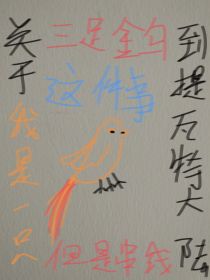 关于我是一只
三足金乌
但是串线
到提瓦特大陆
这件事